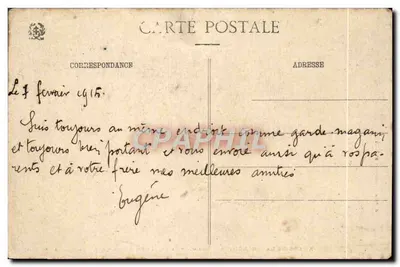 CARTE POSTALE
CORRESPONDANCE
ADRESSE
Le 7 fevrier 1915.
Suis toujours au même endroit comme garde-magasin
et toujours bien portant et vous envoie ainsi qu'à vos pa-
rents et à votre frère nos meilleures amitiés
Eugéne
CPAPHIL